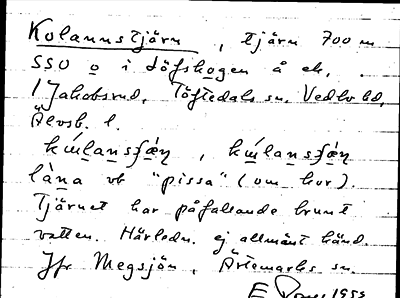 Kolannstjärn, tjärn 700 m
SSO o i Löfskogen å ek.
1 Jakobsrud, Töftedals sn. Vedbo hd,
Älvsb. l.
làna vb "pissa" (om kor).
Tjärnet har påfallande brunt
vatten. Härledn. ej allmänt känd.
Jfr Megsjön, Ärtemarks sn.
1955